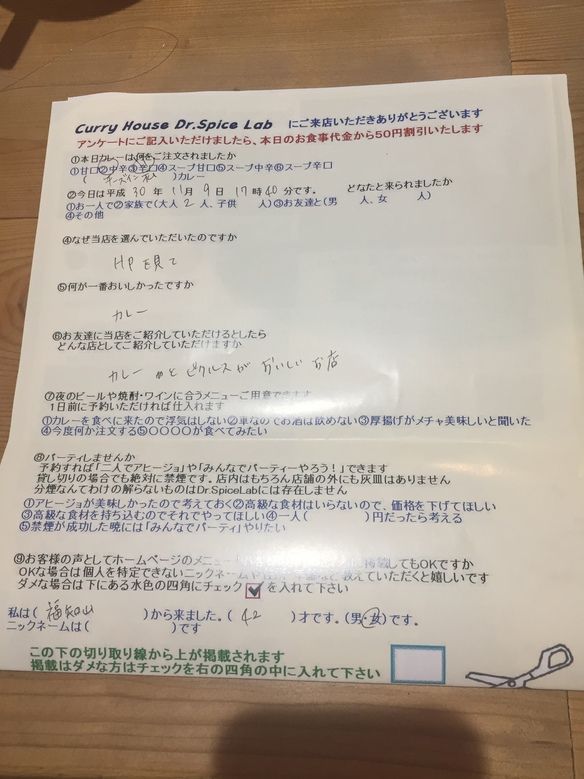 Curry House Dr.Spice Lab にご来店いただきありがとうございます
アンケートにご記入いただけましたら、本日のお食事代金から50円割引いたします
①本日カレーは何をご注文されましたか
①甘口②中辛③辛口④スープ甘口⑤スープ中辛⑥スープ辛口
( )カレー
②今日は平成 30 年 11月 9日 17時40分です。 どなたと来られましたか
①お一人で②家族で(大人 2 人、子供 人)③お友達と(男 人、女 人)
④その他
④なぜ当店を選んでいただいたのですか
HPを見て
⑤何が一番おいしかったですか
カレー
⑥お友達に当店をご紹介していただけるとしたら
どんな店としてご紹介していただけますか
カレー と ピクルスが おいしい お店
⑦夜のビールや焼酎・ワインに合うメニューご用意できます
1日前に予約いただければ仕入れます
①カレーを食べに来たので浮気はしない②車なのでお酒は飲めない③厚揚げがメチャ美味しいと聞いた
④今度何か注文する⑤〇〇〇〇が食べてみたい
⑧パーティしませんか
予約すれば「二人でアヒージョ」や「みんなでパーティーやろう!」できます
貸し切りの場合でも絶対に禁煙です。店内はもちろん店舗の外にも灰皿はありません
分煙なんてわけの解らないものはDr.SpiceLabには存在しません
①アヒージョが美味しかったので考えておく②高級な食材はいらないので、価格を下げてほしい
③高級な食材を持ち込むのでそれでやってほしい④一人( )円だったら考える
⑤禁煙が成功した暁には「みんなでパーティ」やりたい
⑨お客様の声としてホームページのメニュー 掲載してもOKですか
OKな場合は個人を特定できないニックネームや 教えていただくと嬉しいです
ダメな場合は下にある水色の四角にチェック を入れて下さい
私は( 福知山 )から来ました。( 42 )才です。(男・女)です。
ニックネームは( )です
この下の切り取り線から上が掲載されます
掲載はダメな方はチェックを右の四角の中に入れて下さい